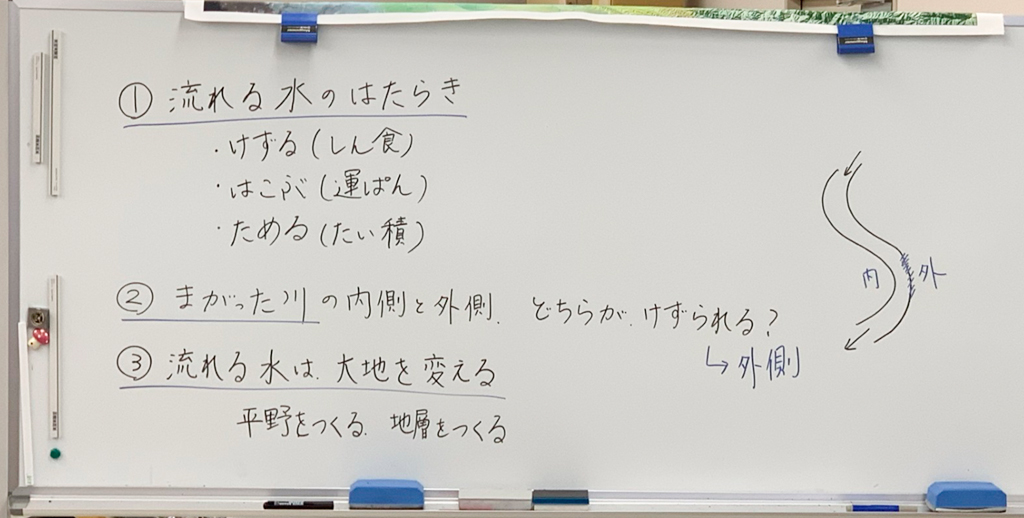 ① 流れる水のはたらき
・けずる(しん食)
・はこぶ(運ぱん)
・ためる(たい積)
② まがった川の内側と外側. どちらが.けずられる?
↳外側
③ 流れる水は.大地を変える
平野をつくる. 地層をつくる
内 外